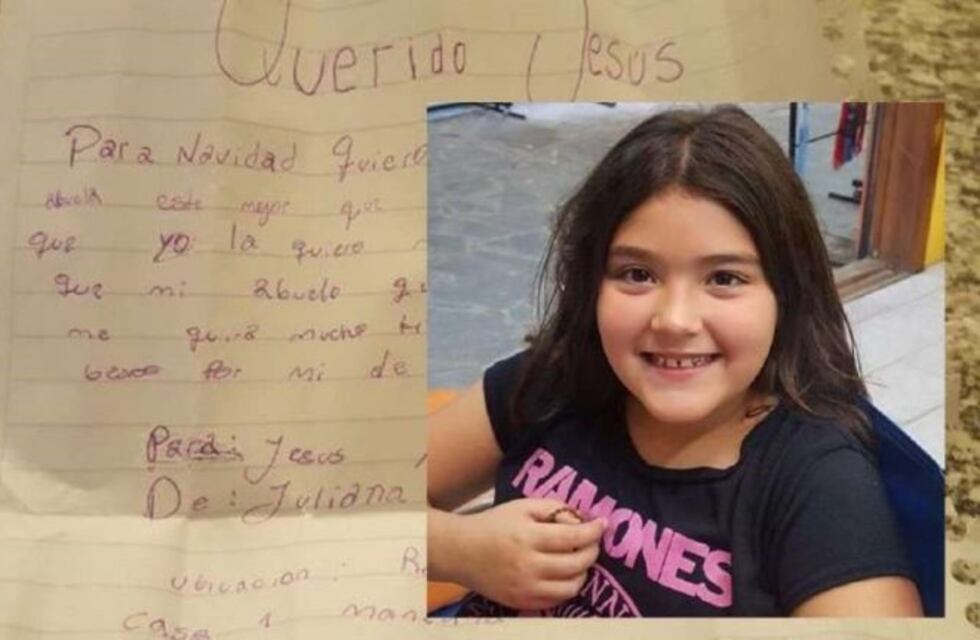 Querido Jesus
Para Navidad quiero
abuela este mejor que
que yo la quiero
que mi abuelo
me quira mucho
besos por mi de
Para: Jesus
De: Juliana
ubicacion:
casa 1
RAMONES